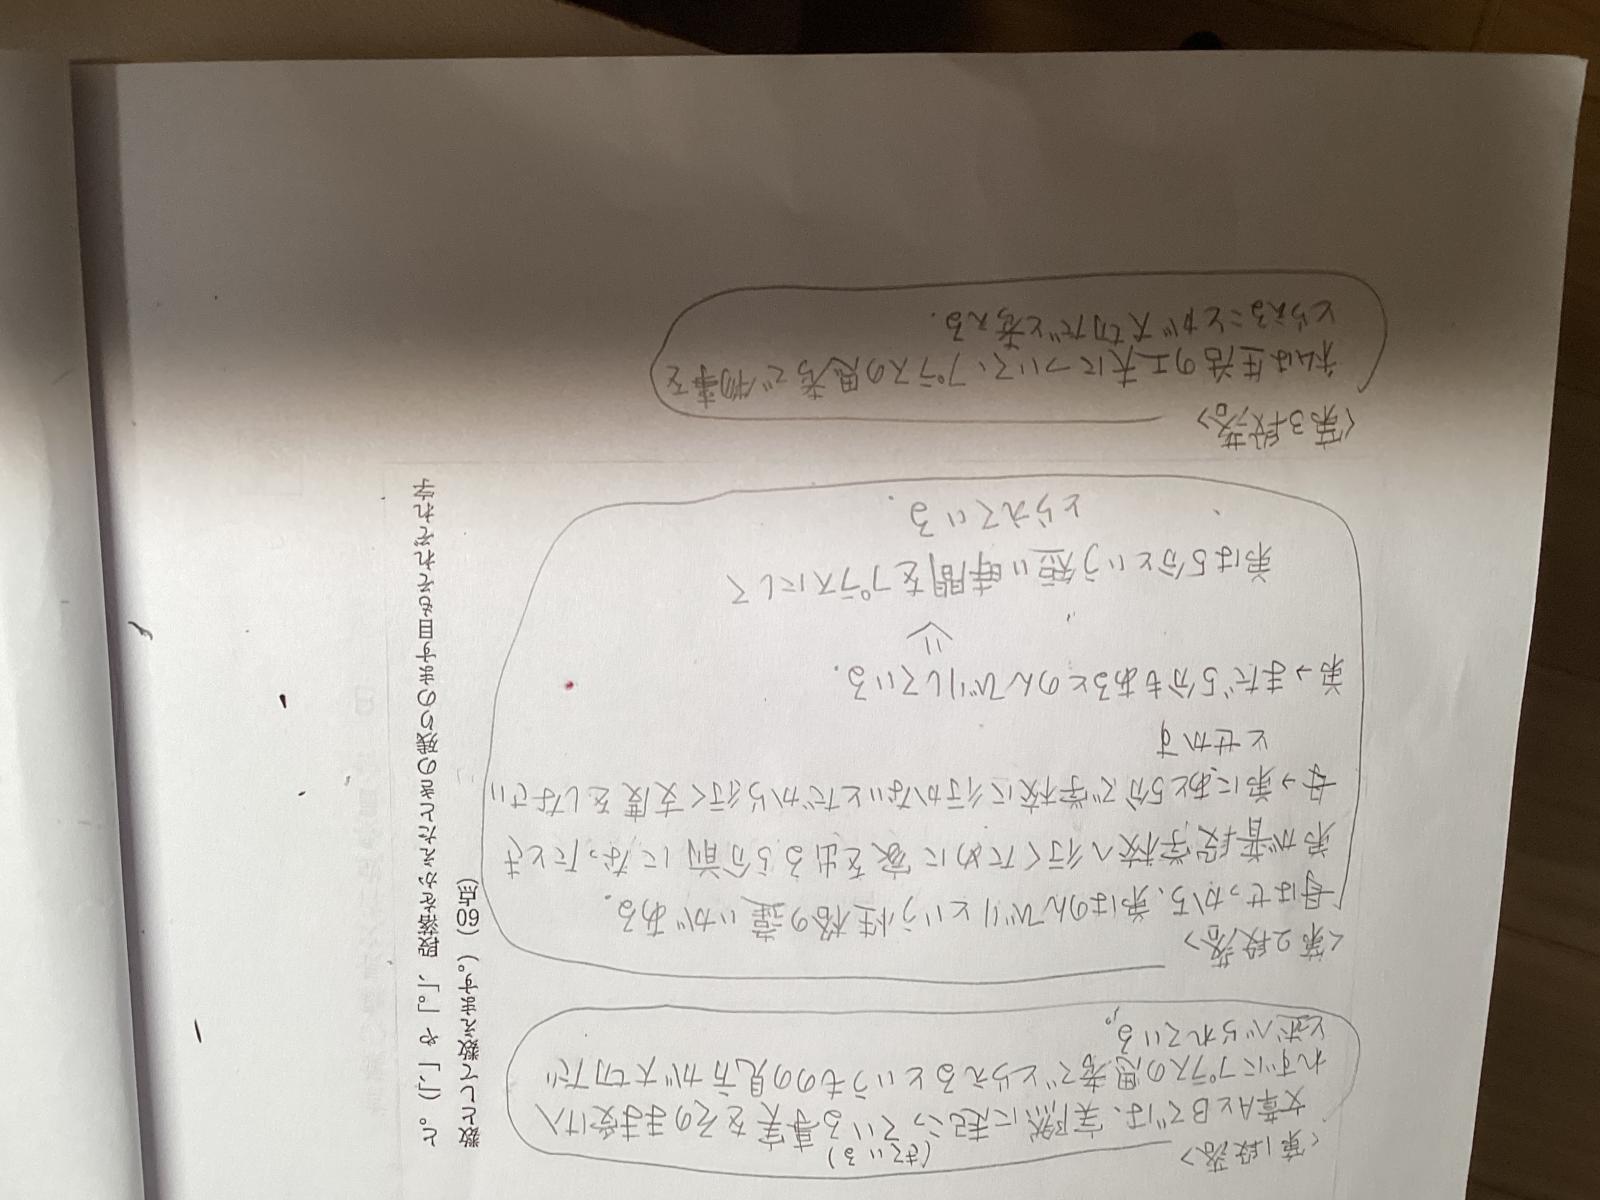 <第1段落>
(きている)
文章AとBでは、実際に起こっている事実をそのまま受け入
れずにプラスの思考でとらえるというものの見方が大切だ
と述べられている。
<第2段落>
母はせっかち、弟はのんびりという性格の違いがある。
弟が普段学校へ行くために家を出る5分前になったとき
母→弟にあと5分で学校に行かないとだから行く支度をしなさい
とせかす
弟→まだ5分もあるとのんびりしている。
弟は5分という短い時間をプラスにして
とらえている。
<第3段落>
私は生活の工夫について、プラスの思考で物事を
とらえることが大切だと考える。
と。(、)や「、」「。」、段落をかえたときの残りのます目もそれぞれ字
数として数えます。)(60点)